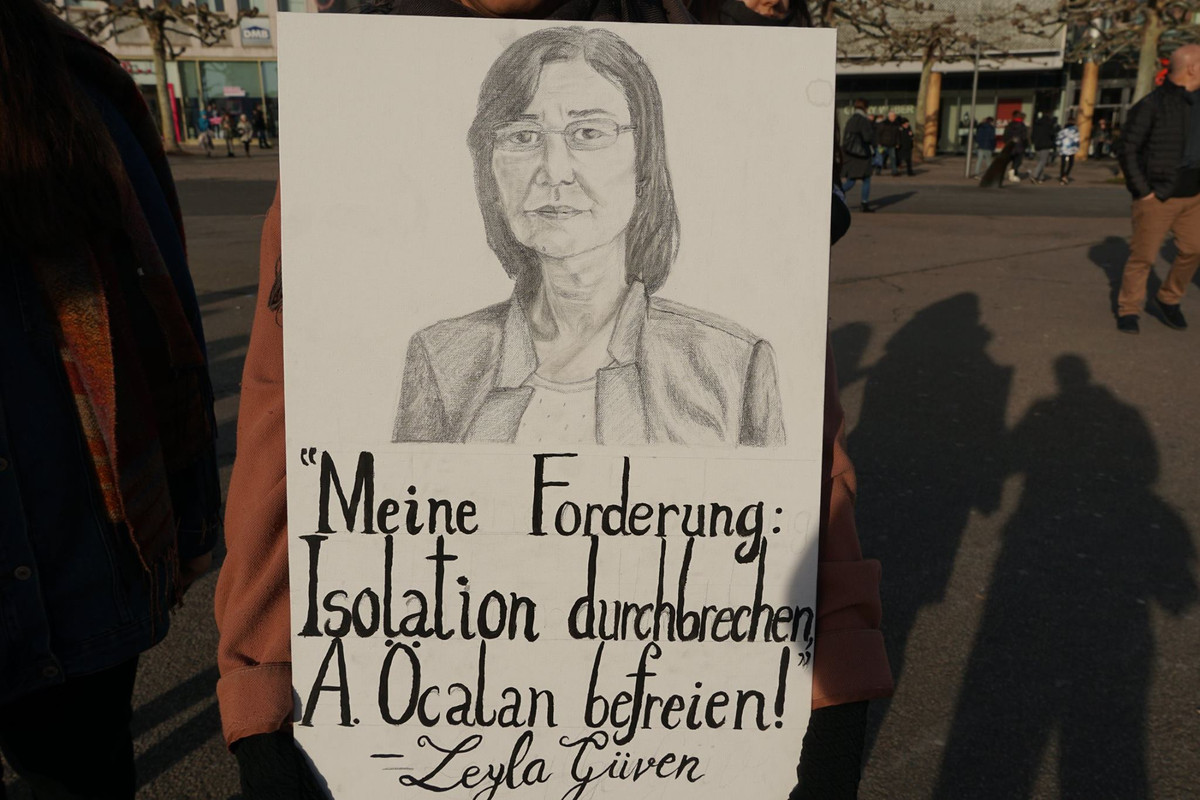 DMB
“Meine Forderung:
Isolation durchbrechen,
A. Öcalan befreien!”
– Leyla Güven